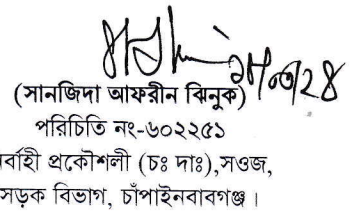 (সানজিদা আফরীন ঝিনুক)
পরিচিতি নং-৬০২২৫১
র্বাহী প্রকৌশলী (চঃ দাঃ),সওজ,
সড়ক বিভাগ, চাঁপাইনবাবগঞ্জ।